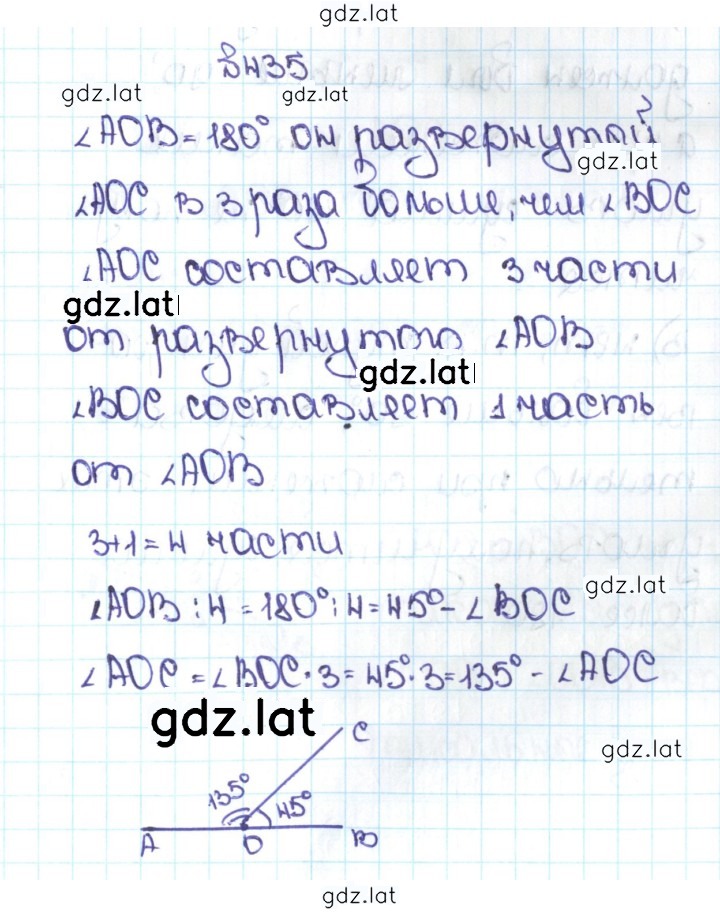 gdz.lat
№435
gdz.lat gdz.lat
∠AOB = 180° он развернутый
gdz.lat
∠AOC в 3 раза больше, чем ∠BOC
∠AOC составляет 3 части
gdz.lat
от развернутого ∠AOB
gdz.lat
∠BOC составляет 1 часть
от ∠AOB
3+1=4 части
∠AOB : 4 = 180° : 4 = 45° - ∠BOC
gdz.lat
∠AOC = ∠BOC · 3 = 45° · 3 = 135° - ∠AOC
gdz.lat
C
gdz.lat
135° 45°
A O B
gdz.lat